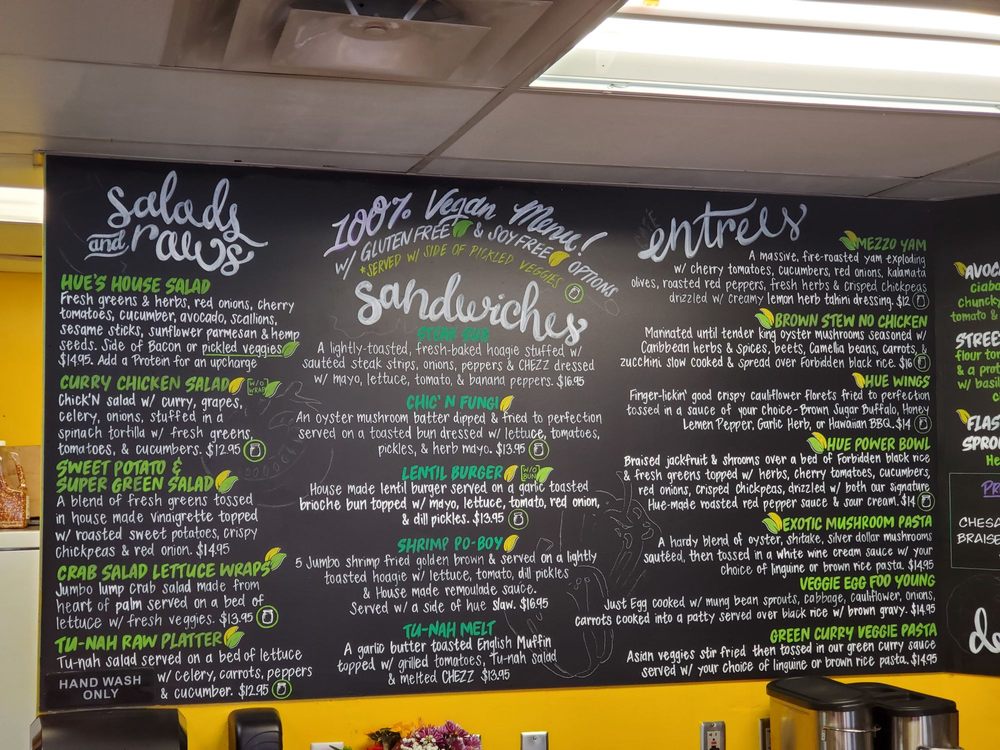 salads
and raws
HUE'S HOUSE SALAD
Fresh greens & herbs, red onions, cherry
tomatoes, cucumber, avocado, scallions,
sesame sticks, sunflower parmesan & hemp
seeds. Side of Bacon or pickled veggies
$14.95. Add a Protein for an upcharge
CURRY CHICKEN SALAD W/O WRAP
Chick'N salad w/ curry, grapes,
celery, onions, stuffed in a
spinach tortilla w/ fresh greens,
tomatoes, & cucumbers. $12.95
SWEET POTATO &
SUPER GREEN SALAD
A blend of fresh greens tossed
in house made vinaigrette topped
w/ roasted sweet potatoes, crispy
chickpeas & red onion. $14.95
CRAB SALAD LETTUCE WRAPS
Jumbo lump crab salad made from
heart of palm served on a bed of
lettuce w/ fresh veggies. $13.95
TU-NAH RAW PLATTER
Tu-nah salad served on a bed of lettuce
w/ celery, carrots, peppers
& cucumber. $12.95
HAND WASH
ONLY
100% Vegan Menu!
W/ GLUTEN FREE & SOY FREE OPTIONS
*SERVED W/ SIDE OF PICKLED VEGGIES
sandwiches
STEAK SUB
A lightly-toasted, fresh-baked hoagie stuffed w/
sautéed steak strips, onions, peppers & CHEZZ dressed
w/ mayo, lettuce, tomato, & banana peppers. $16.95
CHIC' N FUNGI
An oyster mushroom batter dipped & fried to perfection
served on a toasted bun dressed w/ lettuce, tomatoes,
pickles, & herb mayo. $13.95
LENTIL BURGER W/O BUN
House made lentil burger served on a garlic toasted
brioche bun topped w/ mayo, lettuce, tomato, red onion,
& dill pickles. $13.95
SHRIMP PO-BOY
5 Jumbo shrimp fried golden brown & served on a lightly
toasted hoagie w/ lettuce, tomato, dill pickles
& House made remoulade sauce.
Served w/ a side of hue slaw. $16.95
TU-NAH MELT
A garlic butter toasted English Muffin
topped w/ grilled tomatoes, Tu-nah salad
& melted CHEZZ $13.95
entrees
MEZZO YAM
A massive, fire-roasted yam exploding
w/ cherry tomatoes, cucumbers, red onions, kalamata
olives, roasted red peppers, fresh herbs & crisped chickpeas
drizzled w/ creamy lemon herb tahini dressing. $12
BROWN STEW NO CHICKEN
Marinated until tender king oyster mushrooms seasoned w/
Caribbean herbs & spices, beets, Camellia beans, carrots,
zucchini slow cooked & spread over Forbidden black rice. $16
HUE WINGS
Finger-lickin' good crispy cauliflower florets fried to perfection
tossed in a sauce of your choice-Brown Sugar Buffalo, Honey
Lemon Pepper, Garlic Herb, or Hawaiian BBQ. $14
HUE POWER BOWL
Braised jackfruit & shrooms over a bed of Forbidden black rice
& fresh greens topped w/ herbs, cherry tomatoes, cucumbers,
red onions, crisped Chickpeas, drizzled w/ both our signature
Hue-made roasted red pepper sauce & sour cream. $14
EXOTIC MUSHROOM PASTA
A hardy blend of oyster, shitake, silver dollar mushrooms
sautéed, then tossed in a white wine cream sauce w/ your
choice of linguine or brown rice pasta. $14.95
VEGGIE EGG FOO YOUNG
Just Egg cooked w/ mung bean sprouts, cabbage, cauliflower, onions,
carrots cooked into a patty served over black rice w/ brown gravy. $14.95
GREEN CURRY VEGGIE PASTA
Asian veggies stir fried then tossed in our green curry sauce
served w/ your choice of linguine or brown rice pasta. $14.95
AVOC
Ciaba
chunck
tomato &
STREE
flour tor
& a prot
w/ basil
FLAS
SPRO
He
PR
CHESA
BRAISE